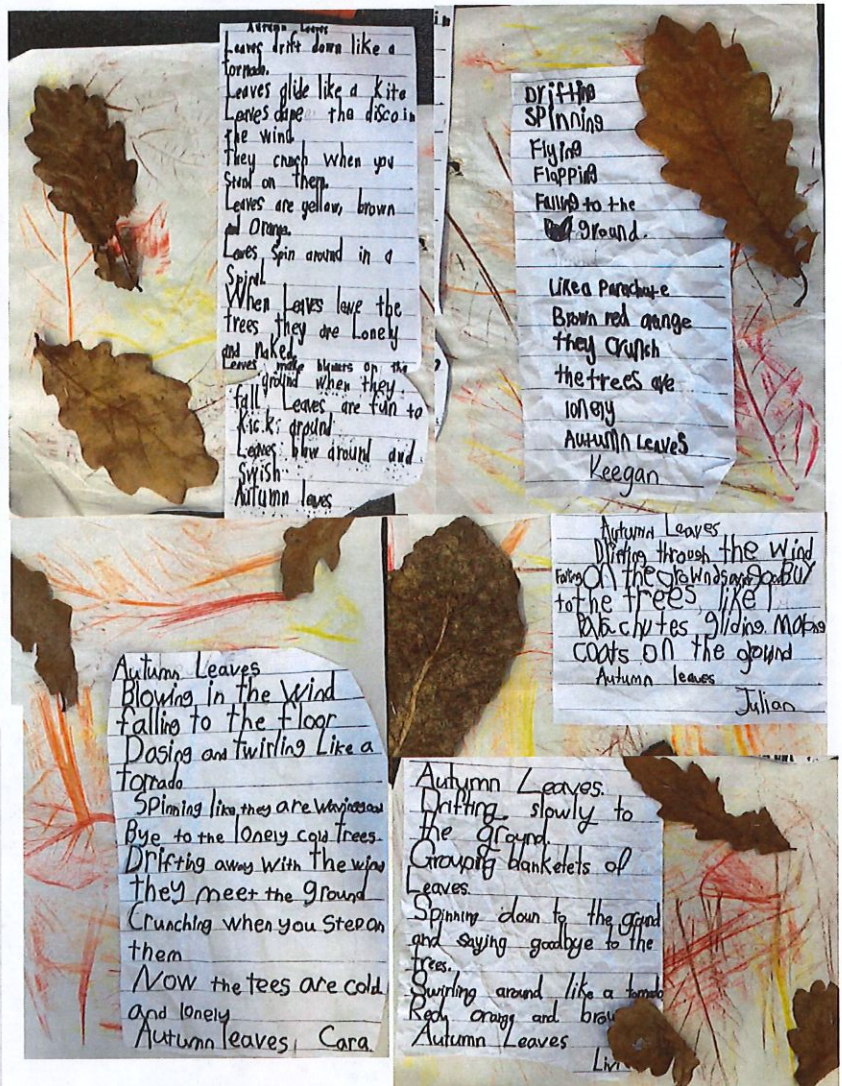 Autumn Leaves
Leaves drift down like a
tornado.
Leaves glide like a kite
Leaves the disco in
the wind
They crunch when you
Stand on them.
Leaves are yellow, brown
and Orange.
Leaves Spin around in a
Spiral
When Leaves leave the
trees they are Lonely
and naked
Leaves make on the
ground when they
fall Leaves are fun to
Kick around
Leaves blow around and
Swish
Autumn leaves
Drifting
SPinning
Flying
Flapping
Falling to the
ground.
Like a Parachute
Brown red orange
they crunch
the trees are
lonely
Autumn Leaves
Keegan
Autumn Leaves
Drifting through the wind
Falling on the
to the trees like
Parachutes gliding making
coats on the ground
Autumn leaves
Julian
Autumn Leaves
Blowing in the wind
falling to the floor
Dasing and twirling Like a
tornado
Spinning like they are waving
Bye to the lonely cold trees
Drifting away with the wind
they meet the ground
Crunching when you Step on
them
Now the tees are cold
and lonely
Autumn leaves Cara
Autumn Leaves.
Drifting slowly to
the ground.
Grouping blanketets of
Leaves.
Spinning down to the
and saying goodbye to the
trees.
Swirling around like a tornado
orange and
Autumn Leaves